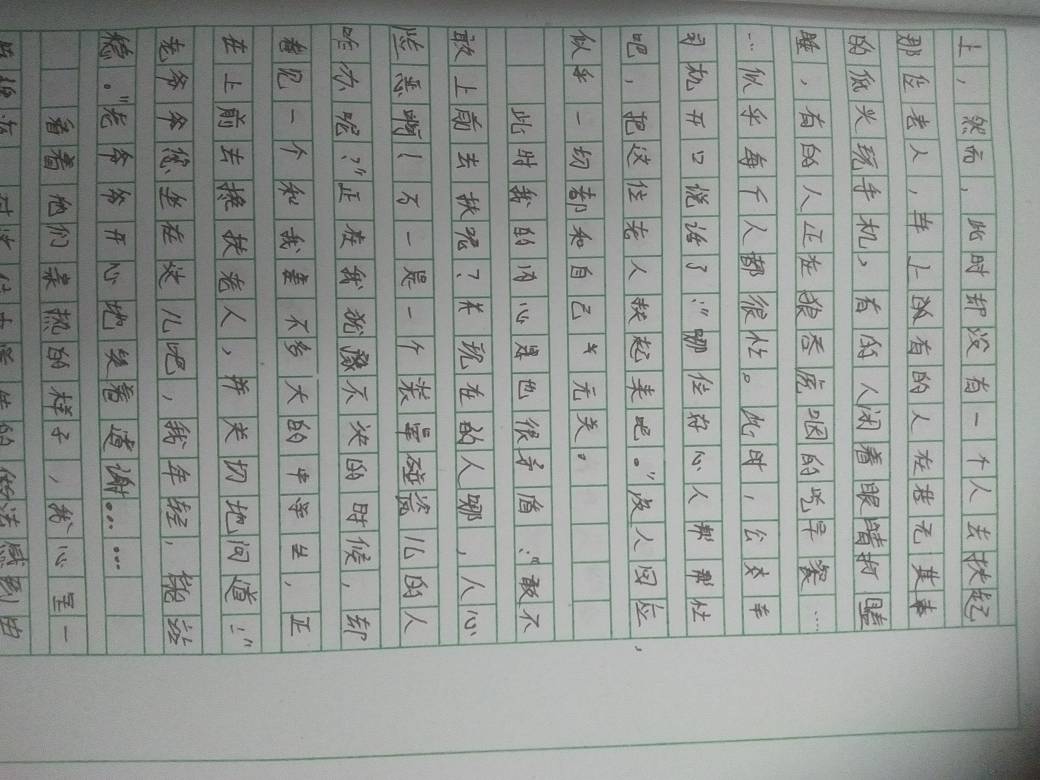 上，然而，此时却没有一个人去扶起
那位老人，车上的有的人在若无其事
的低头玩手机，有的人闭着眼睛打瞌
睡，有的人正在狼吞虎咽的吃早餐……
…似乎每个人都很忙。此时，公交车
司机开口说话了：“哪位好心人帮帮忙
吧，把这位老人扶起来吧。”没人回应
似乎一切都和自己无关。
此时我的内心是也很矛盾：“敢不
敢上前去扶呢？在现在的人哪，人心
些恶啊！万一是一个装晕碰瓷儿的人
咋办呢？”正在我犹豫不决的时候，却
看见一个和我差不多大的中学生，正
在上前去搀扶老人，并关切地问道：“
老爷爷您坐在这儿吧，我年轻，能站
稳。”老爷爷开心地笑着道谢……
看着他们亲热的样子，我心里一